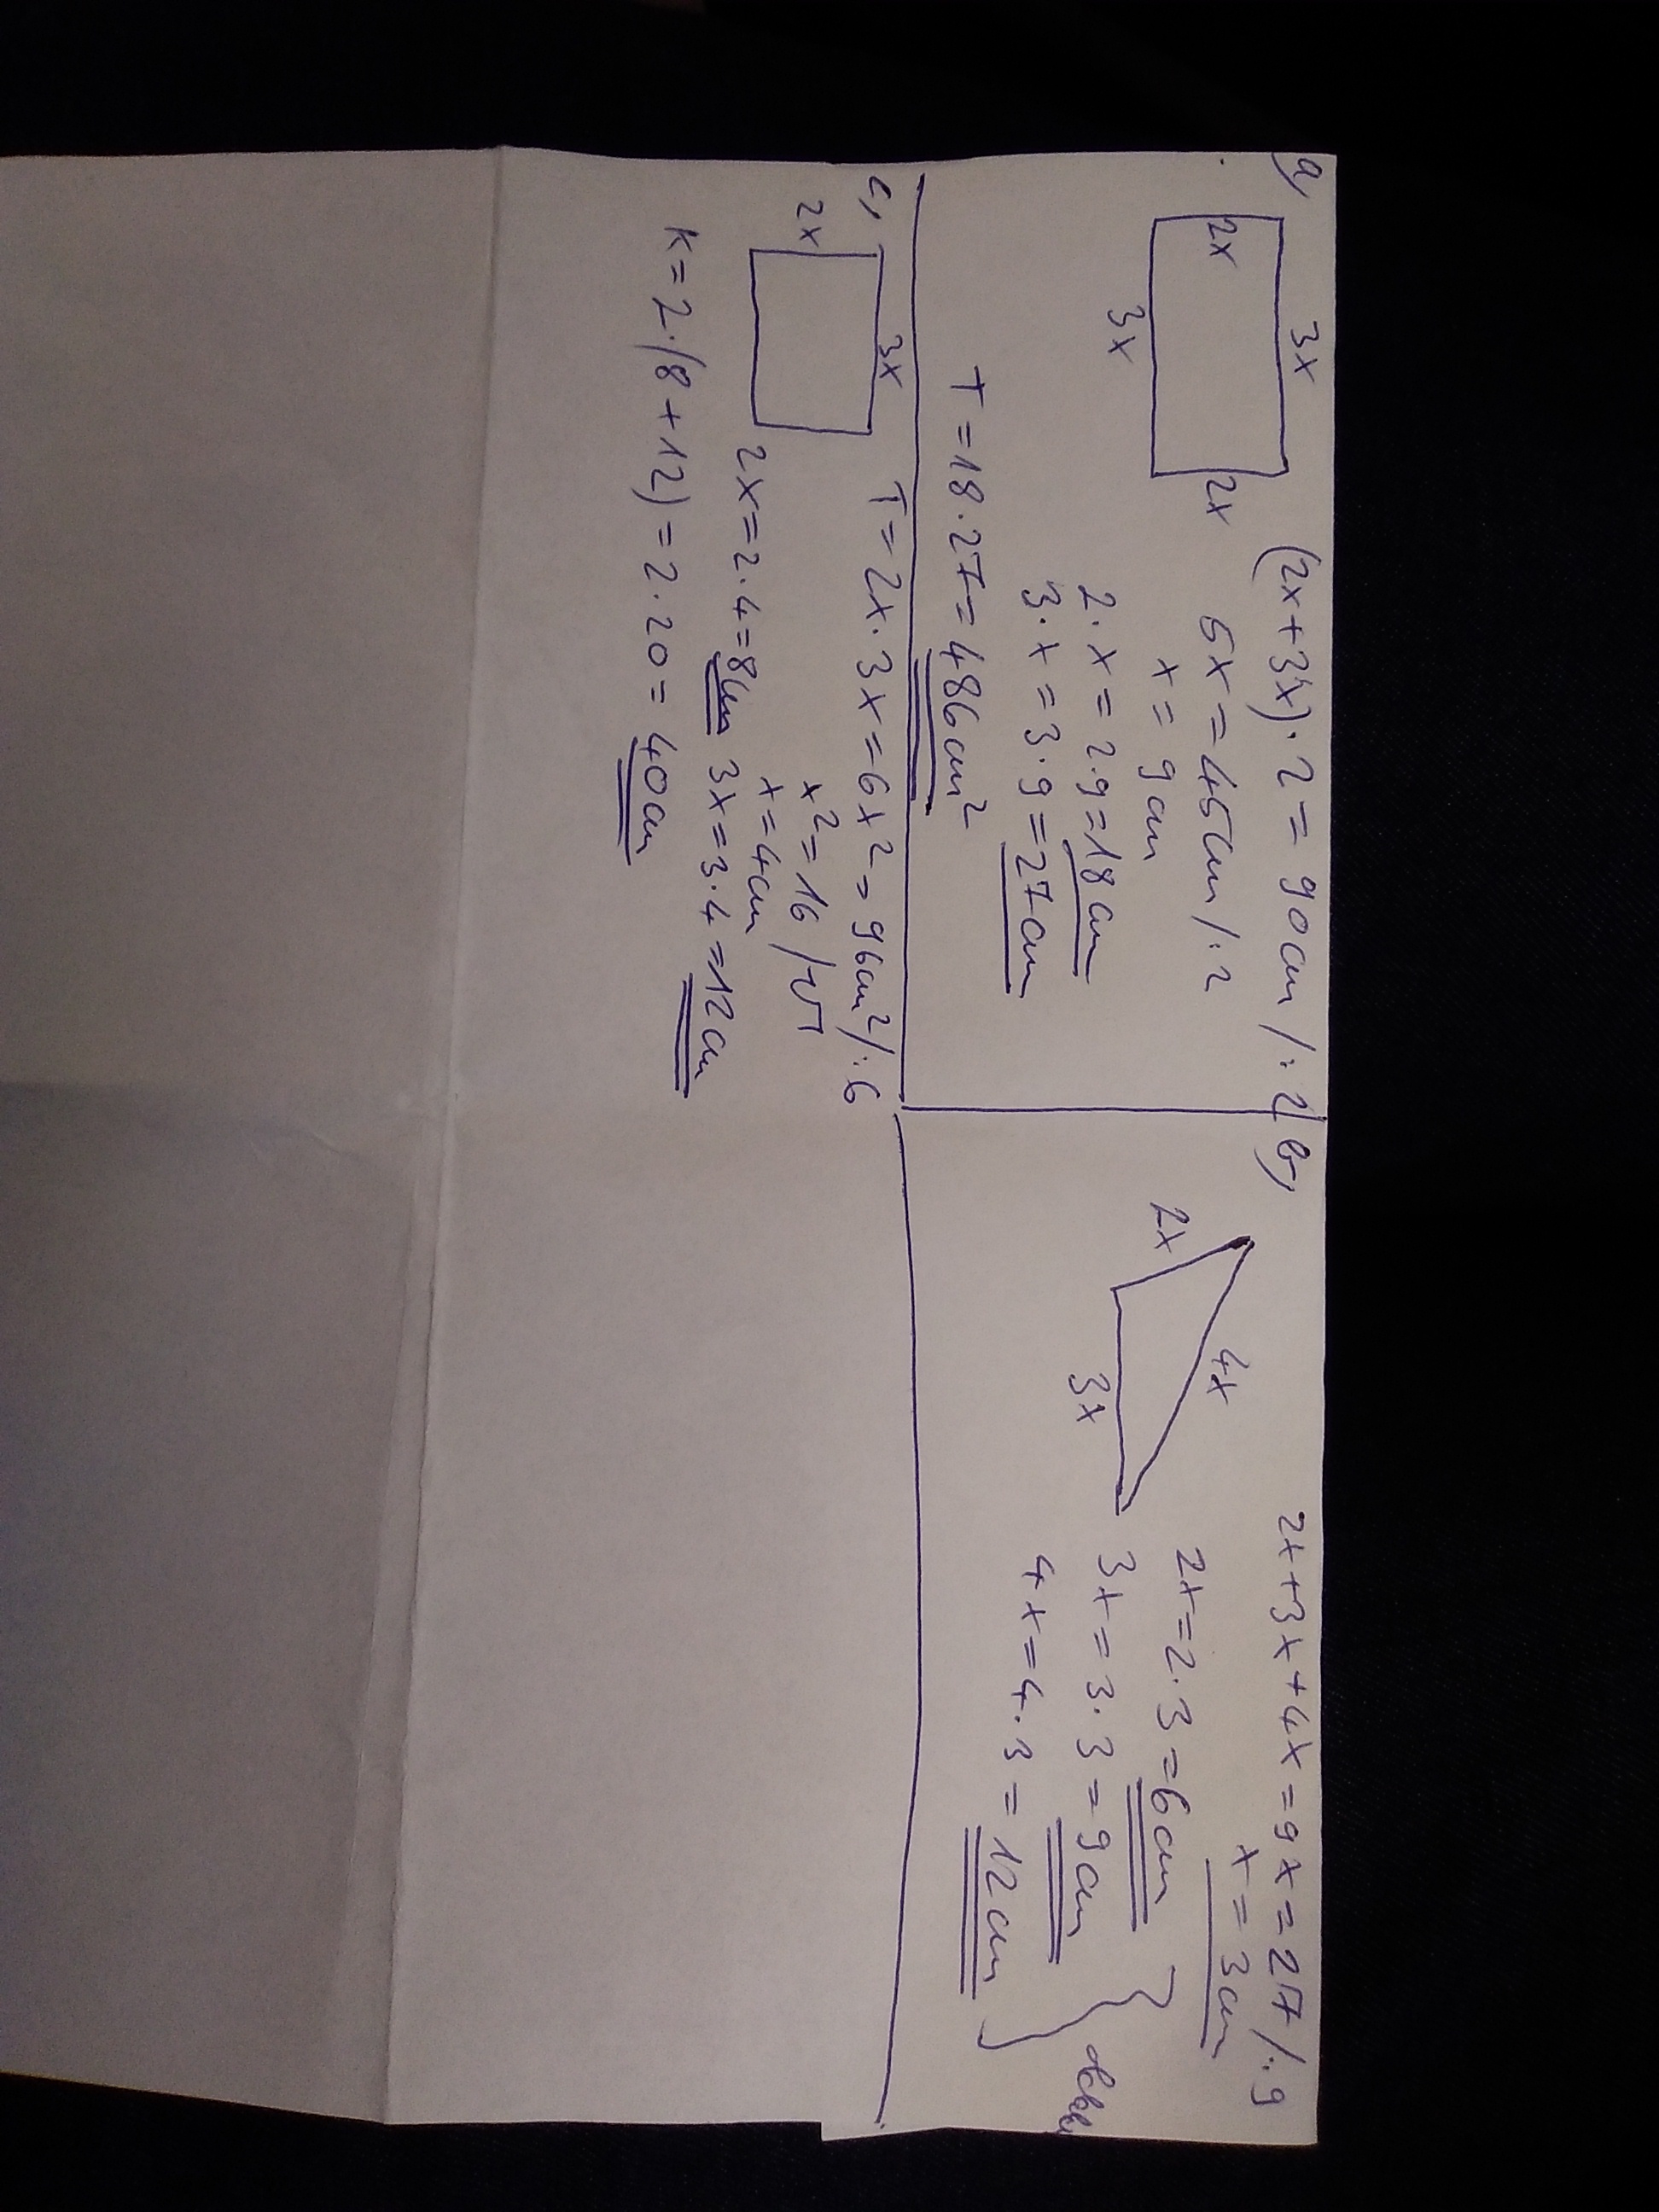 a,
3x
2x
2x
3x
(2x+3x)·2=90cm /:2
5x=45cm /:2
x=9cm
2·x=2·9=18cm
3·x=3·9=27cm
T=18·27=486cm²
b,
2x
4x
3x
2x+3x+4x=9x=27 /:9
x=3cm
2x=2·3=6cm
3x=3·3=9cm
4x=4·3=12cm
c,
2x
3x
T=2x·3x=6x²=96cm² /:6
x²=16 /√
x=4cm
2x=2·4=8cm 3x=3·4=12cm
K=2·(8+12)=2·20=40cm